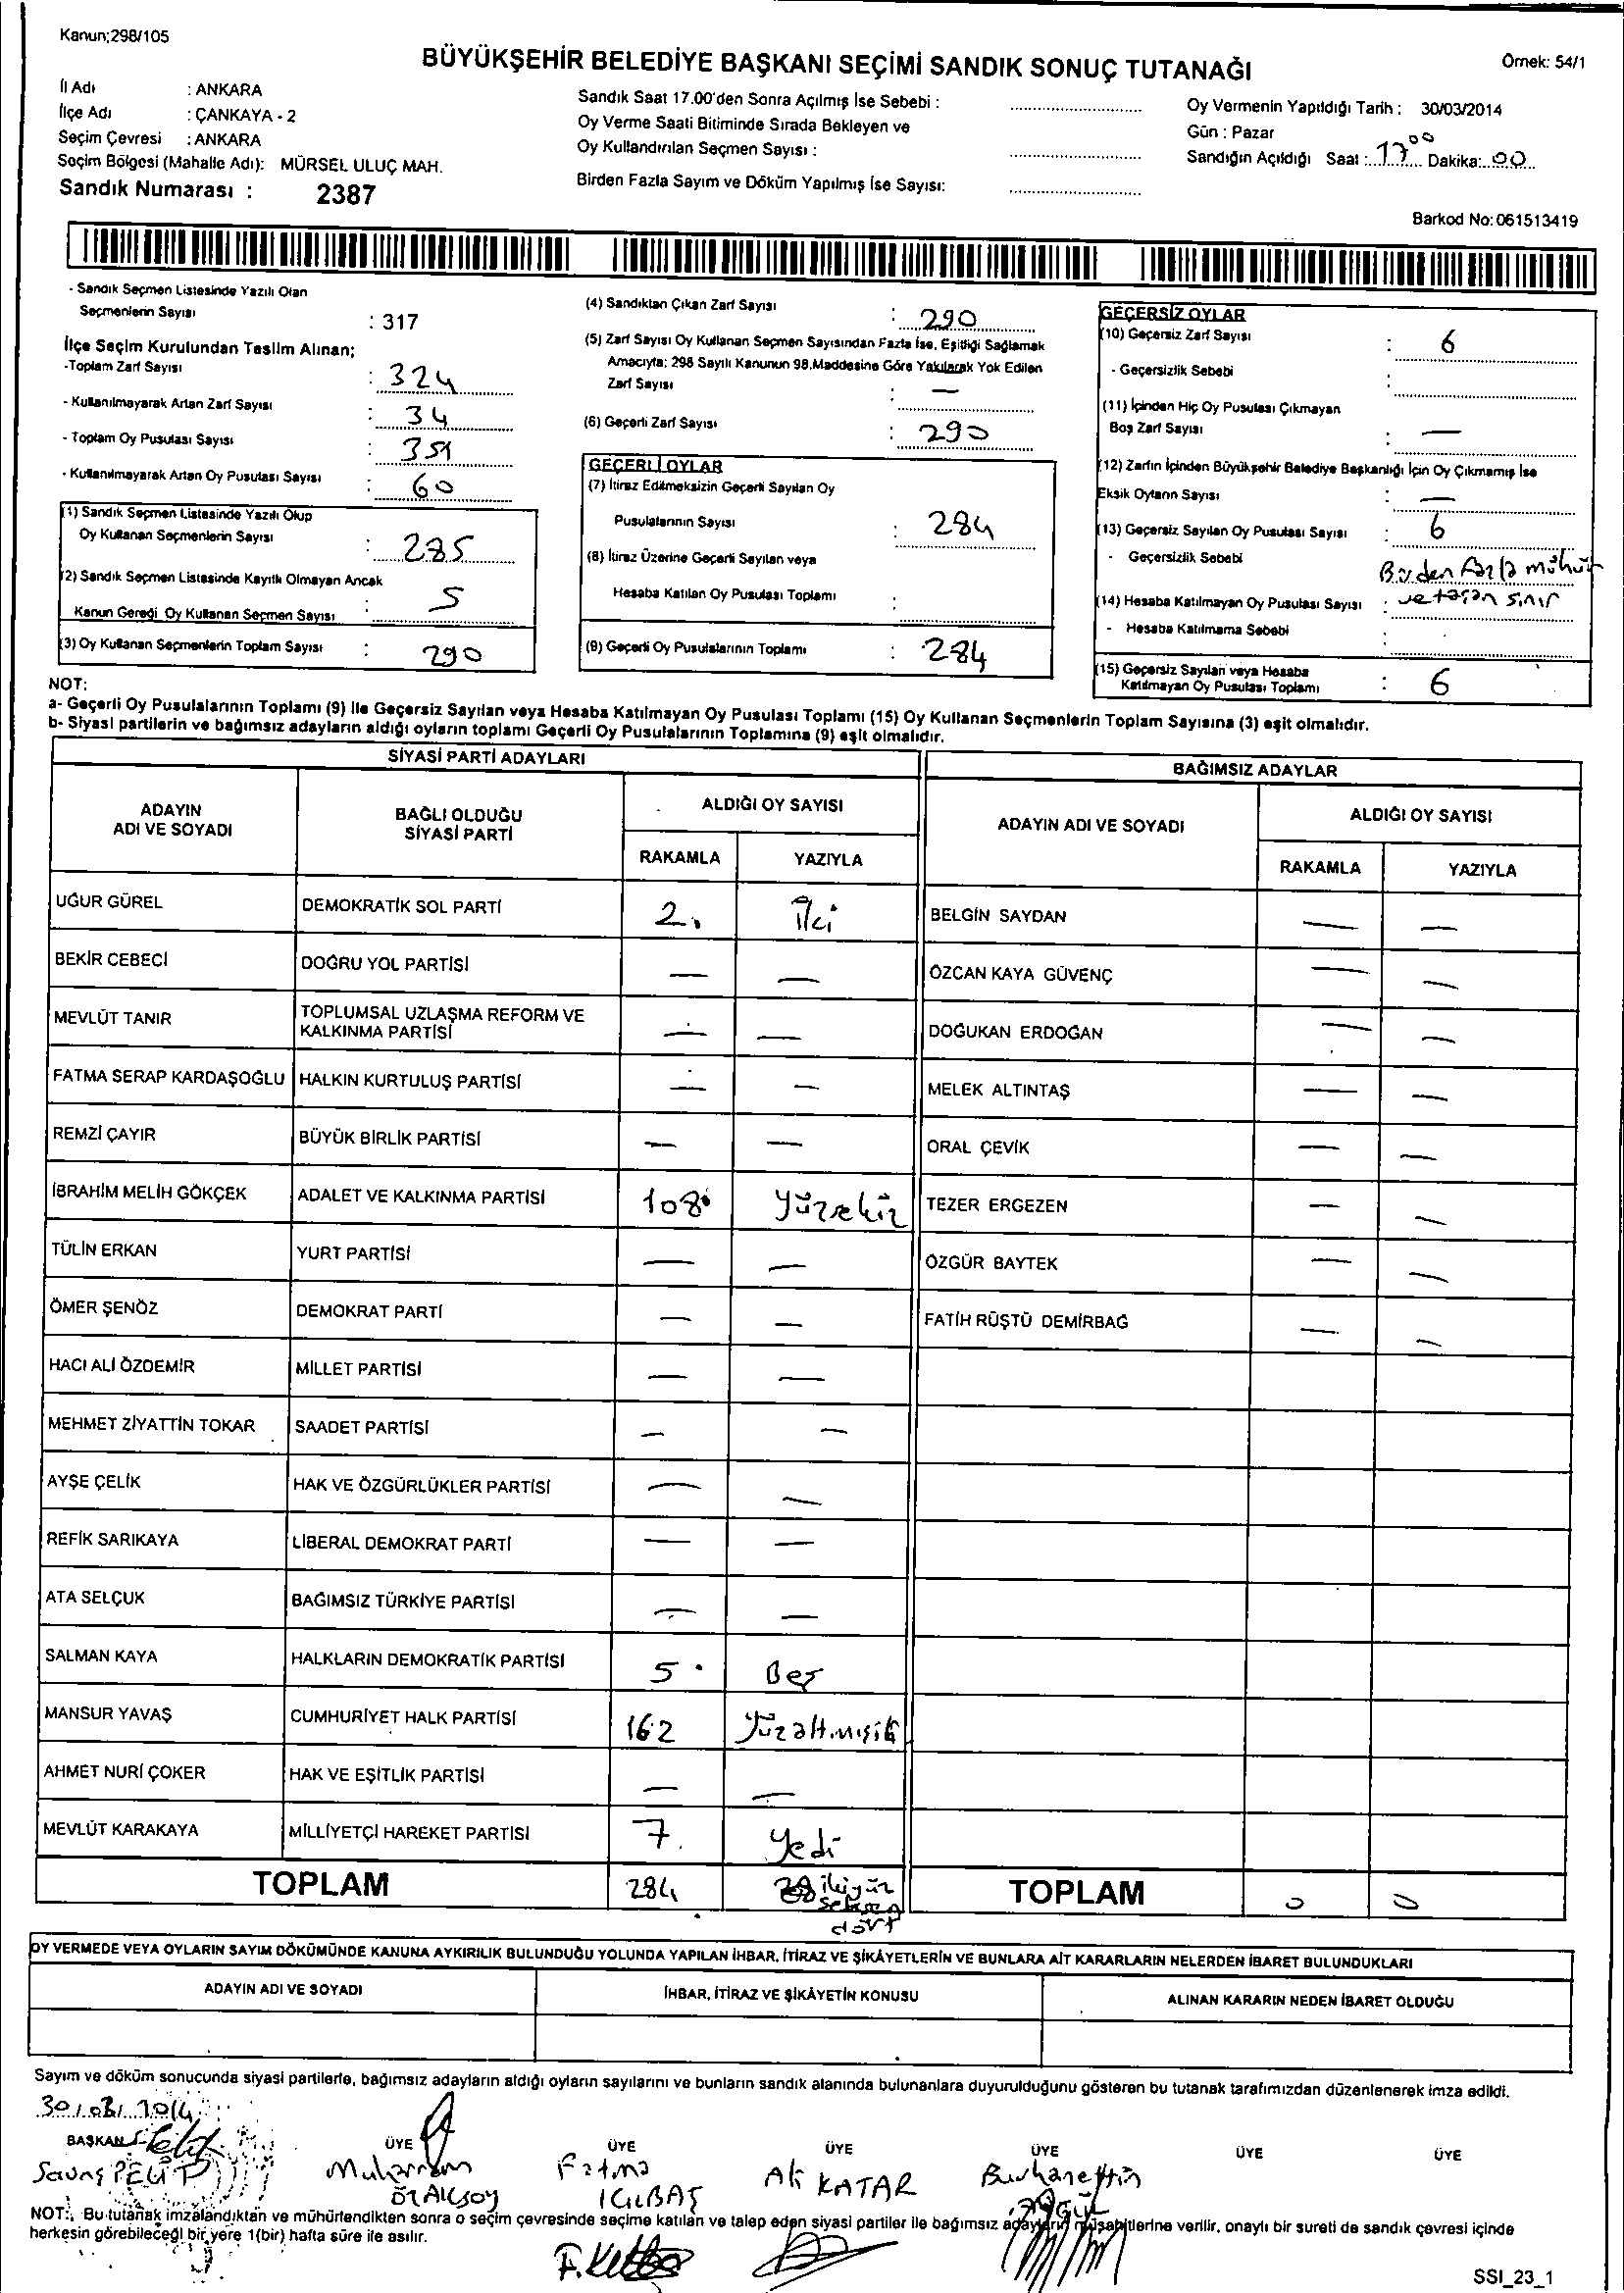 Kanun;298/105
BÜYÜKŞEHİR BELEDİYE BAŞKANI SEÇİMİ SANDIK SONUÇ TUTANAĞI
Örnek: 54/1
İl Adı : ANKARA
İlçe Adı : ÇANKAYA - 2
Seçim Çevresi : ANKARA
Seçim Bölgesi (Mahalle Adı): MÜRSEL ULUÇ MAH.
Sandık Numarası : 2387
Sandık Saat 17.00'den Sonra Açılmış İse Sebebi :
Oy Verme Saati Bitiminde Sırada Bekleyen ve
Oy Kullandırılan Seçmen Sayısı :
Birden Fazla Sayım ve Döküm Yapılmış İse Sayısı:
Oy Vermenin Yapıldığı Tarih : 30/03/2014
Gün : Pazar
Sandığın Açıldığı Saat : 17 00 Dakika: 00
Barkod No: 061513419
- Sandık Seçmen Listesinde Yazılı Olan
Seçmenlerin Sayısı : 317
İlçe Seçim Kurulundan Teslim Alınan;
-Toplam Zarf Sayısı : 324
- Kullanılmayarak Artan Zarf Sayısı : 34
- Toplam Oy Pusulası Sayısı : 351
- Kullanılmayarak Artan Oy Pusulası Sayısı : 60
(1) Sandık Seçmen Listesinde Yazılı Olup
Oy Kullanan Seçmenlerin Sayısı : 285
(2) Sandık Seçmen Listesinde Kayıtlı Olmayan Ancak
Kanun Gereği Oy Kullanan Seçmen Sayısı : 5
(3) Oy Kullanan Seçmenlerin Toplam Sayısı : 290
(4) Sandıktan Çıkan Zarf Sayısı : 290
(5) Zarf Sayısı Oy Kullanan Seçmen Sayısından Fazla İse, Eşitliği Sağlamak
Amacıyla; 298 Sayılı Kanunun 98.Maddesine Göre Yakılarak Yok Edilen
Zarf Sayısı : —
(6) Geçerli Zarf Sayısı : 290
GEÇERLİ OYLAR
(7) İtiraz Edilmeksizin Geçerli Sayılan Oy
Pusulalarının Sayısı : 284
(8) İtiraz Üzerine Geçerli Sayılan veya
Hesaba Katılan Oy Pusulası Toplamı :
(9) Geçerli Oy Pusulalarının Toplamı : 284
GEÇERSİZ OYLAR
(10) Geçersiz Zarf Sayısı : 6
- Geçersizlik Sebebi :
(11) İçinden Hiç Oy Pusulası Çıkmayan
Boş Zarf Sayısı : —
(12) Zarfın İçinden Büyükşehir Belediye Başkanlığı İçin Oy Çıkmamış İse
Eksik Oyların Sayısı : —
(13) Geçersiz Sayılan Oy Pusulası Sayısı : 6
- Geçersizlik Sebebi Birden fazla mühür
(14) Hesaba Katılmayan Oy Pusulası Sayısı : ve taşan sınır
- Hesaba Katılmama Sebebi :
(15) Geçersiz Sayılan veya Hesaba
Katılmayan Oy Pusulası Toplamı : 6
NOT:
a- Geçerli Oy Pusulalarının Toplamı (9) İle Geçersiz Sayılan veya Hesaba Katılmayan Oy Pusulası Toplamı (15) Oy Kullanan Seçmenlerin Toplam Sayısına (3) eşit olmalıdır.
b- Siyasi partilerin ve bağımsız adayların aldığı oyların toplamı Geçerli Oy Pusulalarının Toplamına (9) eşit olmalıdır.
SİYASİ PARTİ ADAYLARI
ADAYIN ADI VE SOYADI BAĞLI OLDUĞU SİYASİ PARTİ ALDIĞI OY SAYISI
RAKAMLA YAZIYLA
UĞUR GÜREL DEMOKRATİK SOL PARTİ 2. İki
BEKİR CEBECİ DOĞRU YOL PARTİSİ — —
MEVLÜT TANIR TOPLUMSAL UZLAŞMA REFORM VE
KALKINMA PARTİSİ — —
FATMA SERAP KARDAŞOĞLU HALKIN KURTULUŞ PARTİSİ — —
REMZİ ÇAYIR BÜYÜK BİRLİK PARTİSİ — —
İBRAHİM MELİH GÖKÇEK ADALET VE KALKINMA PARTİSİ 108
TÜLİN ERKAN YURT PARTİSİ — —
ÖMER ŞENÖZ DEMOKRAT PARTİ — —
HACI ALİ ÖZDEMİR MİLLET PARTİSİ — —
MEHMET ZİYATTİN TOKAR SAADET PARTİSİ — —
AYŞE ÇELİK HAK VE ÖZGÜRLÜKLER PARTİSİ — —
REFİK SARIKAYA LİBERAL DEMOKRAT PARTİ — —
ATA SELÇUK BAĞIMSIZ TÜRKİYE PARTİSİ — —
SALMAN KAYA HALKLARIN DEMOKRATİK PARTİSİ 5 Beş
MANSUR YAVAŞ CUMHURİYET HALK PARTİSİ 162 Yüzaltmışiki
AHMET NURİ ÇOKER HAK VE EŞİTLİK PARTİSİ — —
MEVLÜT KARAKAYA MİLLİYETÇİ HAREKET PARTİSİ 7 Yedi
TOPLAM 284 ikiyüz
seksen
dört
BAĞIMSIZ ADAYLAR
ADAYIN ADI VE SOYADI ALDIĞI OY SAYISI
RAKAMLA YAZIYLA
BELGİN SAYDAN — —
ÖZCAN KAYA GÜVENÇ — —
DOĞUKAN ERDOĞAN — —
MELEK ALTINTAŞ — —
ORAL ÇEVİK — —
TEZER ERGEZEN — —
ÖZGÜR BAYTEK — —
FATİH RÜŞTÜ DEMİRBAĞ — —
TOPLAM 0 0
OY VERMEDE VEYA OYLARIN SAYIM DÖKÜMÜNDE KANUNA AYKIRILIK BULUNDUĞU YOLUNDA YAPILAN İHBAR, İTİRAZ VE ŞİKÂYETLERİN VE BUNLARA AİT KARARLARIN NELERDEN İBARET BULUNDUKLARI
ADAYIN ADI VE SOYADI İHBAR, İTİRAZ VE ŞİKÂYETİN KONUSU ALINAN KARARIN NEDEN İBARET OLDUĞU
Sayım ve döküm sonucunda siyasi partilerle, bağımsız adayların aldığı oyların sayılarını ve bunların sandık alanında bulunanlara duyurulduğunu gösteren bu tutanak tarafımızdan düzenlenerek imza edildi.
30/03/2014
BAŞKAN ÜYE ÜYE ÜYE ÜYE ÜYE ÜYE
Savaş PELİT Muharrem Fatma Ali KATAR Burhanettin
ÖZAKSOY
NOT: Bu tutanak imzalandıktan ve mühürlendikten sonra o seçim çevresinde seçime katılan ve talep eden siyasi partiler ile bağımsız adayların müşahitlerine verilir, onaylı bir sureti de sandık çevresi içinde
herkesin görebileceği bir yere 1(bir) hafta süre ile asılır.
SSI_23_1